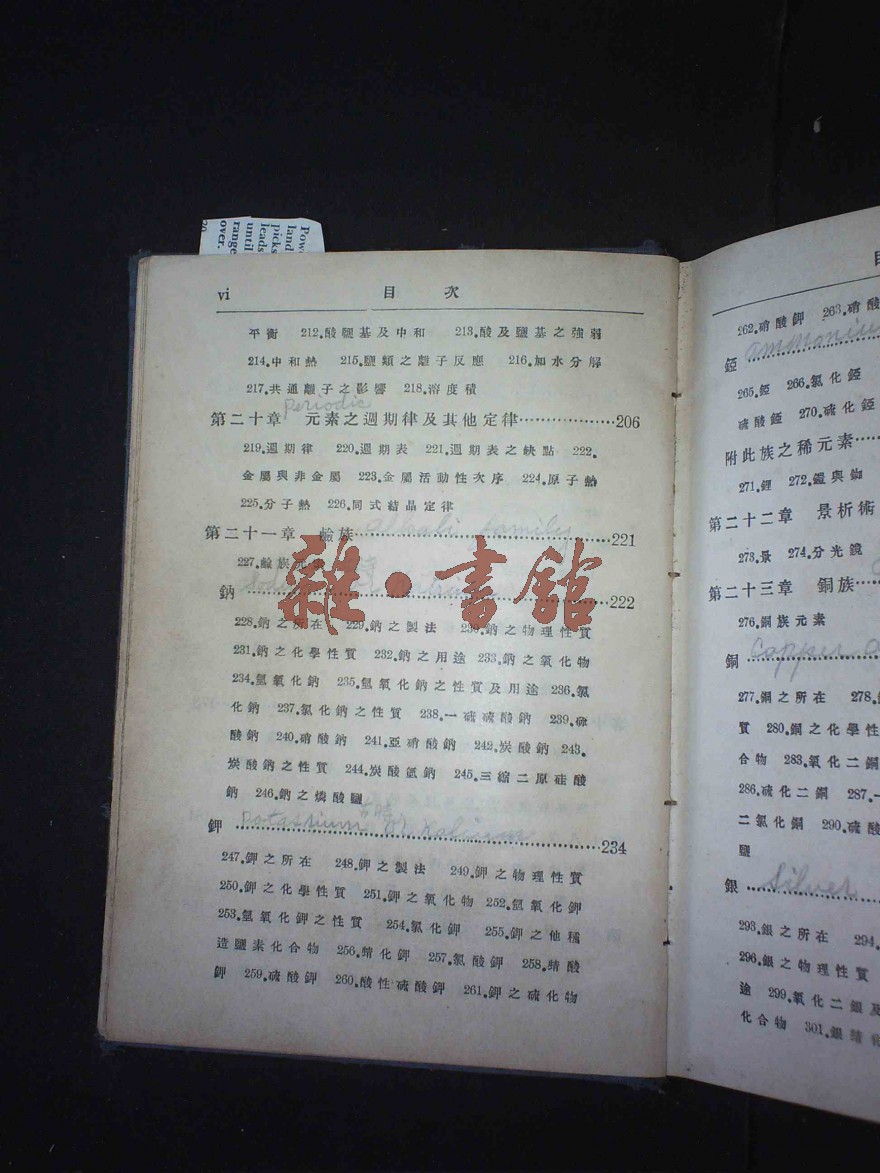 Powe
land
picks
leads
until
range
over.
vi 目次
平衡 212.酸鹽基及中和 213.酸及鹽基之強弱
214.中和熱 215.鹽類之離子反應 216.加水分解
217.共通離子之影響 218.溶度積
periodic
第二十章 元素之週期律及其他定律………………206
219.週期律 220.週期表 221.週期表之缺點 222.
金屬與非金屬 223.金屬活動性次序 224.原子熱
225.分子熱 226.同式結晶定律
alkali family
第二十一章 鹼族………………221
227.鹼族元素
鈉………………222
雜·書館
228.鈉之所在 229.鈉之製法 230.鈉之物理性質
231.鈉之化學性質 232.鈉之用途 233.鈉之氧化物
234.氫氧化鈉 235.氫氧化鈉之性質及用途 236.氯
化鈉 237.氯化鈉之性質 238.一硫硫酸鈉 239.硫
酸鈉 240.硝酸鈉 241.亞硝酸鈉 242.炭酸鈉 243.
炭酸鈉之性質 244.炭酸氫鈉 245.三縮二原硅酸
鈉 246.鈉之燐酸鹽
potassium or kalium
鉀………………234
247.鉀之所在 248.鉀之製法 249.鉀之物理性質
250.鉀之化學性質 251.鉀之氧化物 252.氫氧化鉀
253.氫氧化鉀之性質 254.氯化鉀 255.鉀之他種
造鹽素化合物 256.䤈化鉀 257.氯酸鉀 258.䤈酸
鉀 259.硫酸鉀 260.酸性硫酸鉀 261.鉀之硫化物
目
262.硝酸鉀 263.硝酸
ammonium
錏………………
265.錏 266.氯化錏
硫酸錏 270.硫化錏
附此族之稀元素……
271.鋰 272.鑥與鉫
第二十二章 景析術
273.景 274.分光鏡
第二十三章 銅族……
276.銅族元素
copper
銅………………
277.銅之所在 278.
質 280.銅之化學性
合物 283.氧化二銅
286.硫化二銅 287.一
二氯化銅 290.硫酸
鹽
silver
銀………………
293.銀之所在 294.
296.銀之物理性質
途 299.氧化二銀及
化合物 301.銀